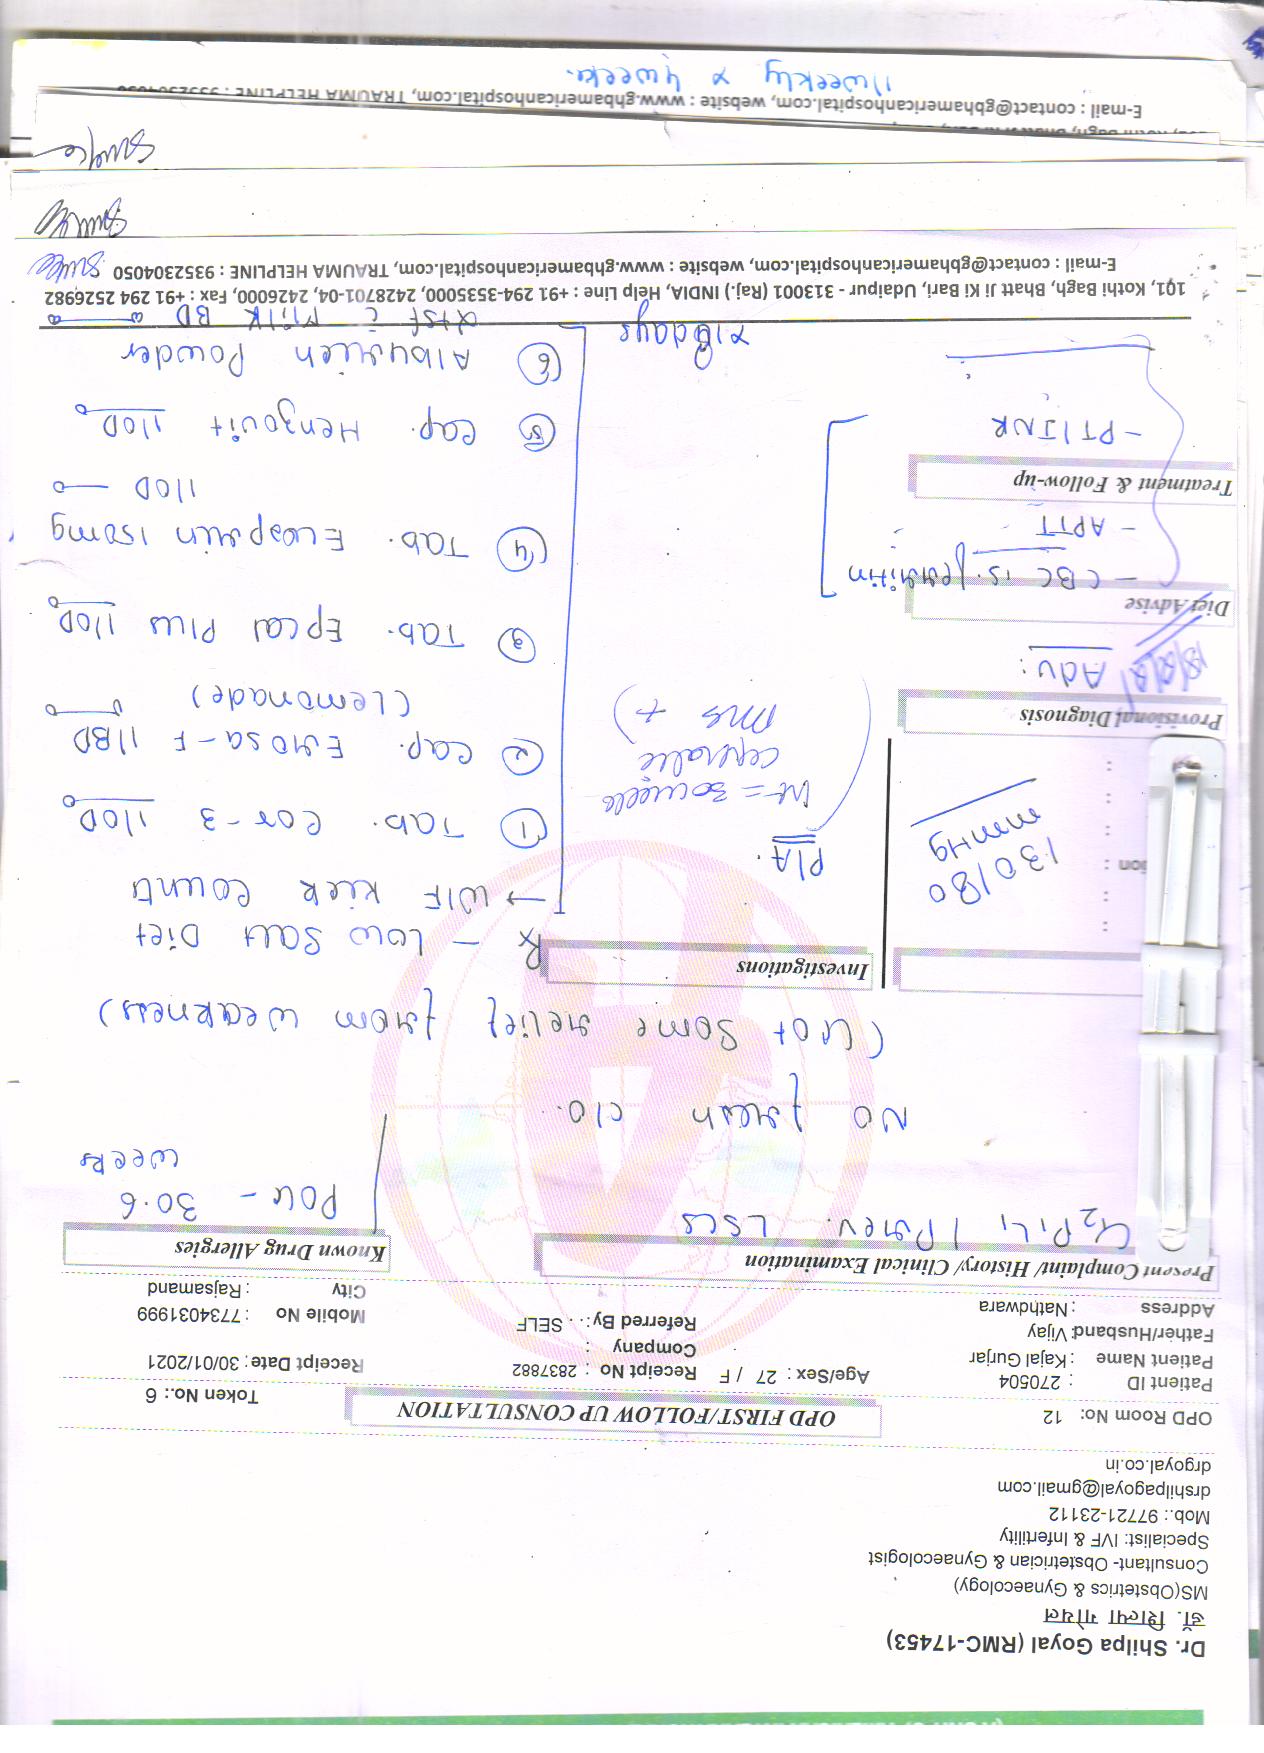 Dr. Shilpa Goyal (RMC-17453)
डॉ. शिल्पा गोयल
MS(Obstetrics & Gynaecology)
Consultant- Obstetrician & Gynaecologist
Specialist: IVF & Infertility
Mob.: 97721-23112
drshilpagoyal@gmail.com
drgoyal.co.in
OPD Room No: 12
OPD FIRST/FOLLOW UP CONSULTATION
Token No.: 6
Patient ID : 270504
Age/Sex : 27 / F
Receipt No : 2837882
Receipt Date : 30/01/2021
Patient Name : Kajal Gurjar
Company :
Father/Husband: Vijay
Referred By: SELF
Mobile No : 7734031999
Address : Nathdwara
City : Rajsamand
Present Complaint/ History/ Clinical Examination
Known Drug Allergies
G2P1L1 / Prev. LSCS
POG - 30.6
weeks
No fresh c/o.
(Got some relief from weakness)
Investigations
Rx - Low Salt Diet
→ WIF kick counts
130/80
mmHg
P/A.
Ht = 30 weeks
cephalic
FHS +
① Tab. Cor-3 1 OD
② Cap. Evosa-F 1 BD
(Lemonade)
③ Tab. Epcal Plus 1 OD
④ Tab. Ecosprin 150mg
1 OD
⑤ Cap. Henzovit 1 OD
⑥ Albumen Powder
2tsf c Milk BD
x 18 days
Provisional Diagnosis
Adv:
Diet Advise
- CBC
- APTT
Treatment & Follow-up
- PT/INR
101, Kothi Bagh, Bhatt Ji Ki Bari, Udaipur - 313001 (Raj.) INDIA, Help Line : +91 294-3535000, 2428701-04, 2426000, Fax : +91 294 2526982
E-mail : contact@gbhamericanhospital.com, website : www.gbhamericanhospital.com, TRAUMA HELPLINE : 9352304050
E-mail : contact@gbhamericanhospital.com, website : www.gbhamericanhospital.com, TRAUMA HELPLINE : 9352304050
1 weekly x 4 weeks.